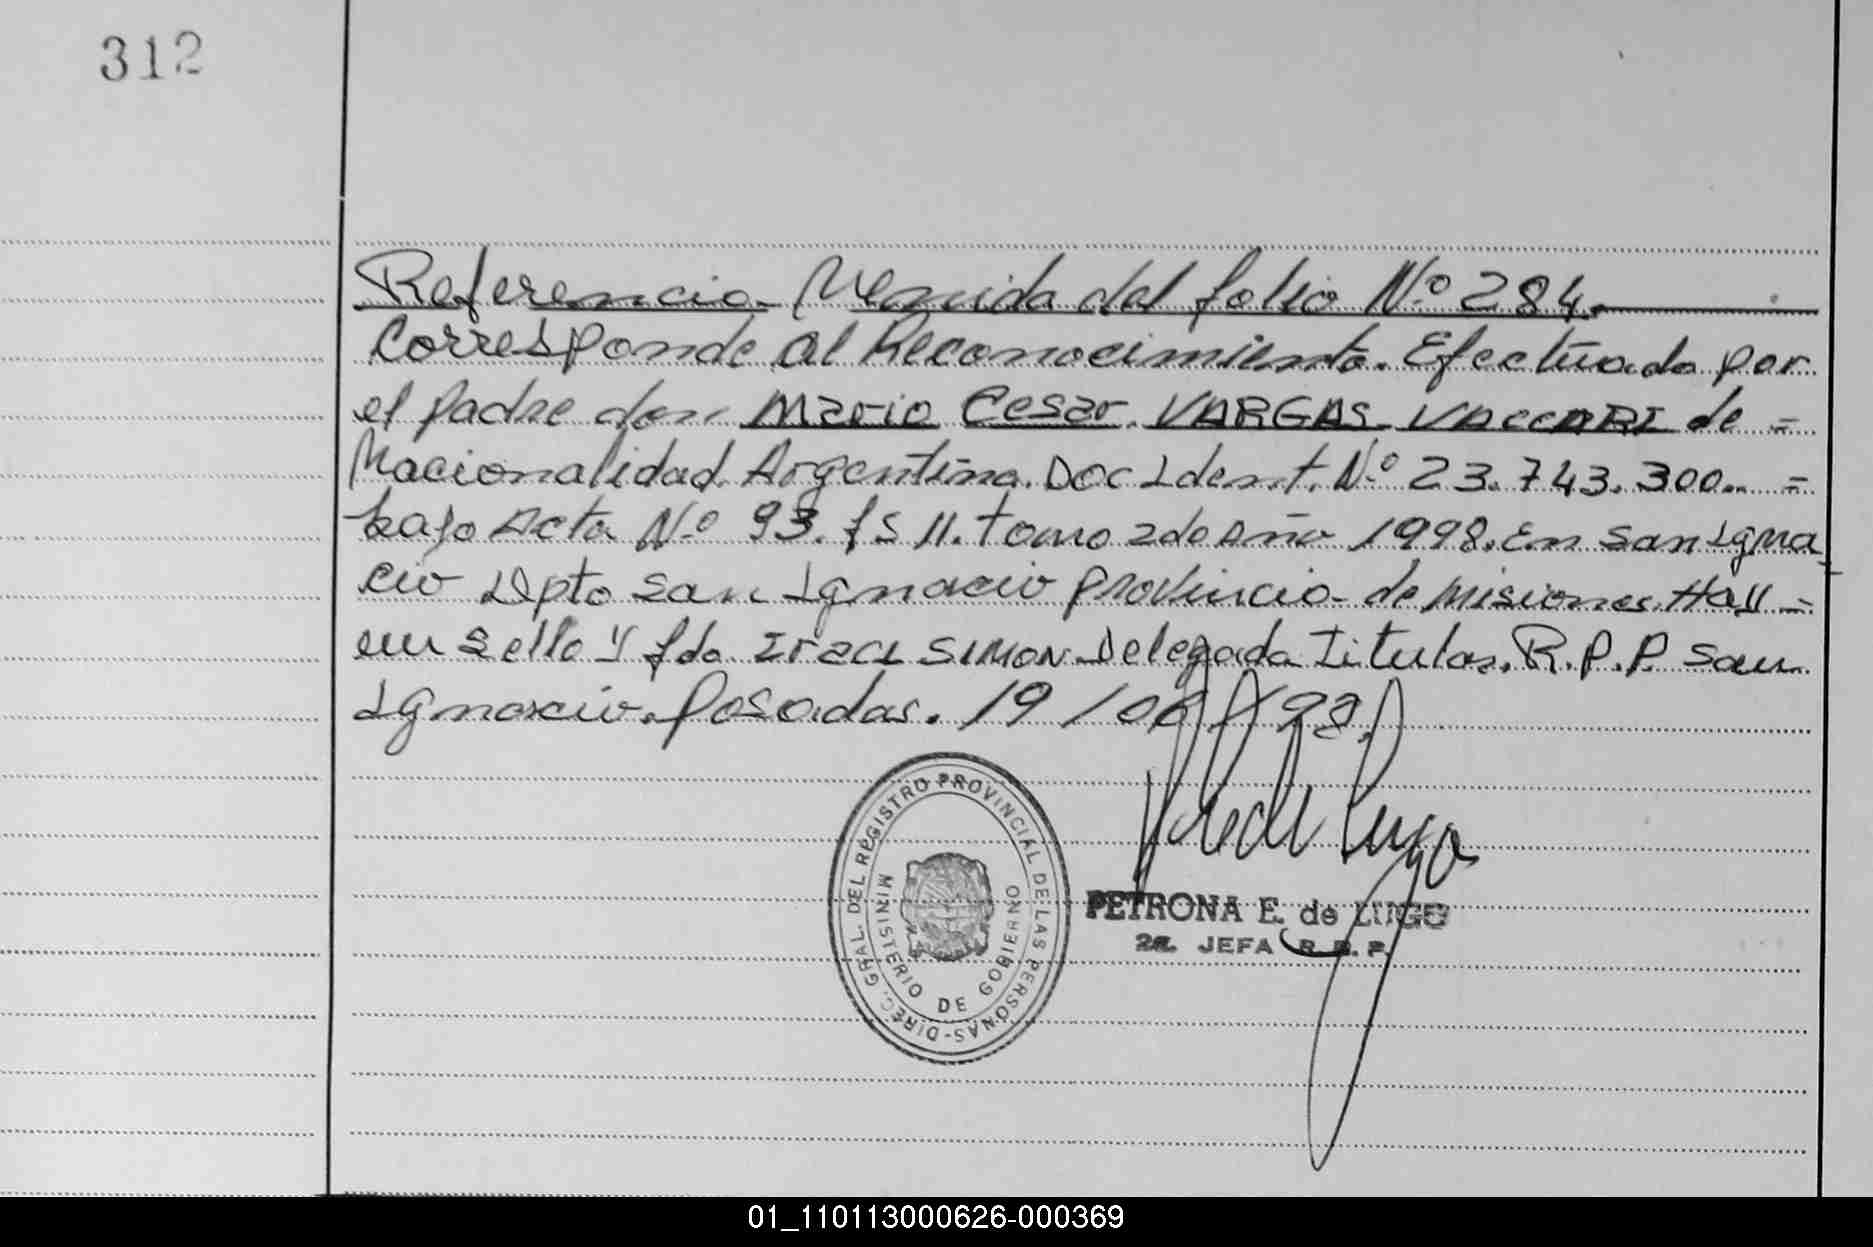 312
Referencia Venida del folio Nº 284.
Corresponde al Reconocimiento. Efectuado por
el padre don Mario Cesar VARGAS VACCARI de =
Nacionalidad Argentina. Doc Ident. Nº 23.743.300.. =
bajo Acta Nº 93. fs 11. tomo 2do Año 1998. En San Igna
cio Dpto San Ignacio provincia de Misiones. Hay =
un sello y fdo. SIMON Delegada Titular. R.P.P. San
Ignacio. Posadas. 19/06/98.
DIREC. GRAL. DEL REGISTRO PROVINCIAL DE LAS PERSONAS-
MINISTERIO DE GOBIERNO
PETRONA E. de LUGO
2a. JEFA R.P.P.
01_110113000626-000369